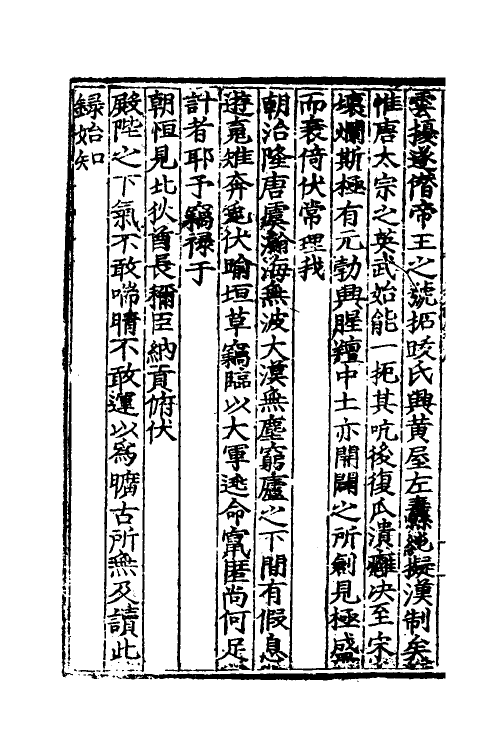 雲擾遂僭帝王之號拓跋氏興黃屋左纛純擬漢制矣
惟唐太宗之英武始能一扼其吭後復瓜潰癰决至宋
壞爛斯極有元勃興腥羶中土亦開闢之所創見極盛
而衰倚伏常理我
朝治隆唐虞瀚海無波大漠無塵窮廬之下間有假息
遊竟雉奔兔伏喻垣草竊臨以大軍逃命竄匿尚何足
計者耶予竊祿于
朝恒見北狄酋長稱臣納貢俯伏
殿陛之下氣不敢喘睛不敢運以爲曠古所無及讀此
録始知